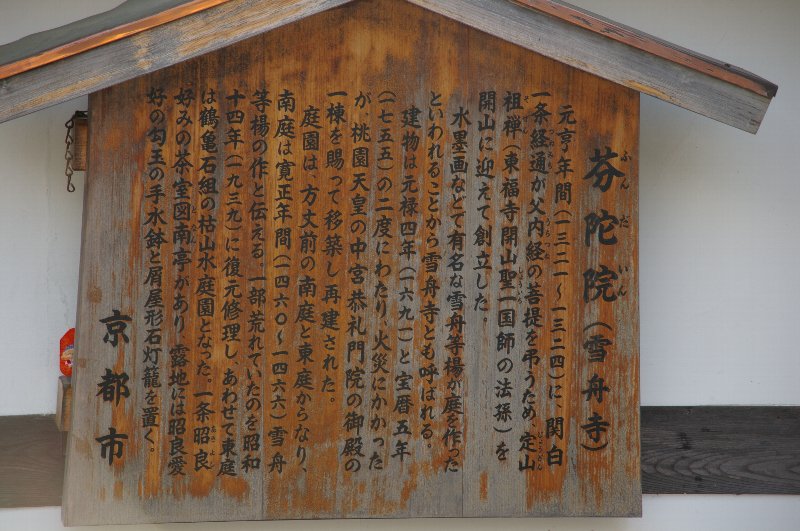 芬陀院（雪舟寺）
元亨年間（一三二一～一三二四）に、関白
一条経通が父内経の菩提を弔うため、定山
祖禅（東福寺開山聖一国師の法孫）を
開山に迎えて創立した。
水墨画などで有名な雪舟等楊が庭を作った
といわれることから雪舟寺とも呼ばれる。
建物は元禄四年（一六九一）と宝暦五年
（一七五五）の二度にわたり、火災にかかった
が、桃園天皇の中宮恭礼門院の御殿の
一棟を賜って移築し再建された。
庭園は、方丈前の南庭と東庭からなり、
南庭は寛正年間（一四六〇～一四六六）雪舟
等楊の作と伝える。一部荒れていたのを昭和
十四年（一九三九）に復元修理し、あわせて東庭
は鶴亀石組の枯山水庭園となった。一条昭良
好みの茶室図南亭があり、露地には昭良愛
好の勾玉の手水鉢と屑屋形石灯籠を置く。
京都市